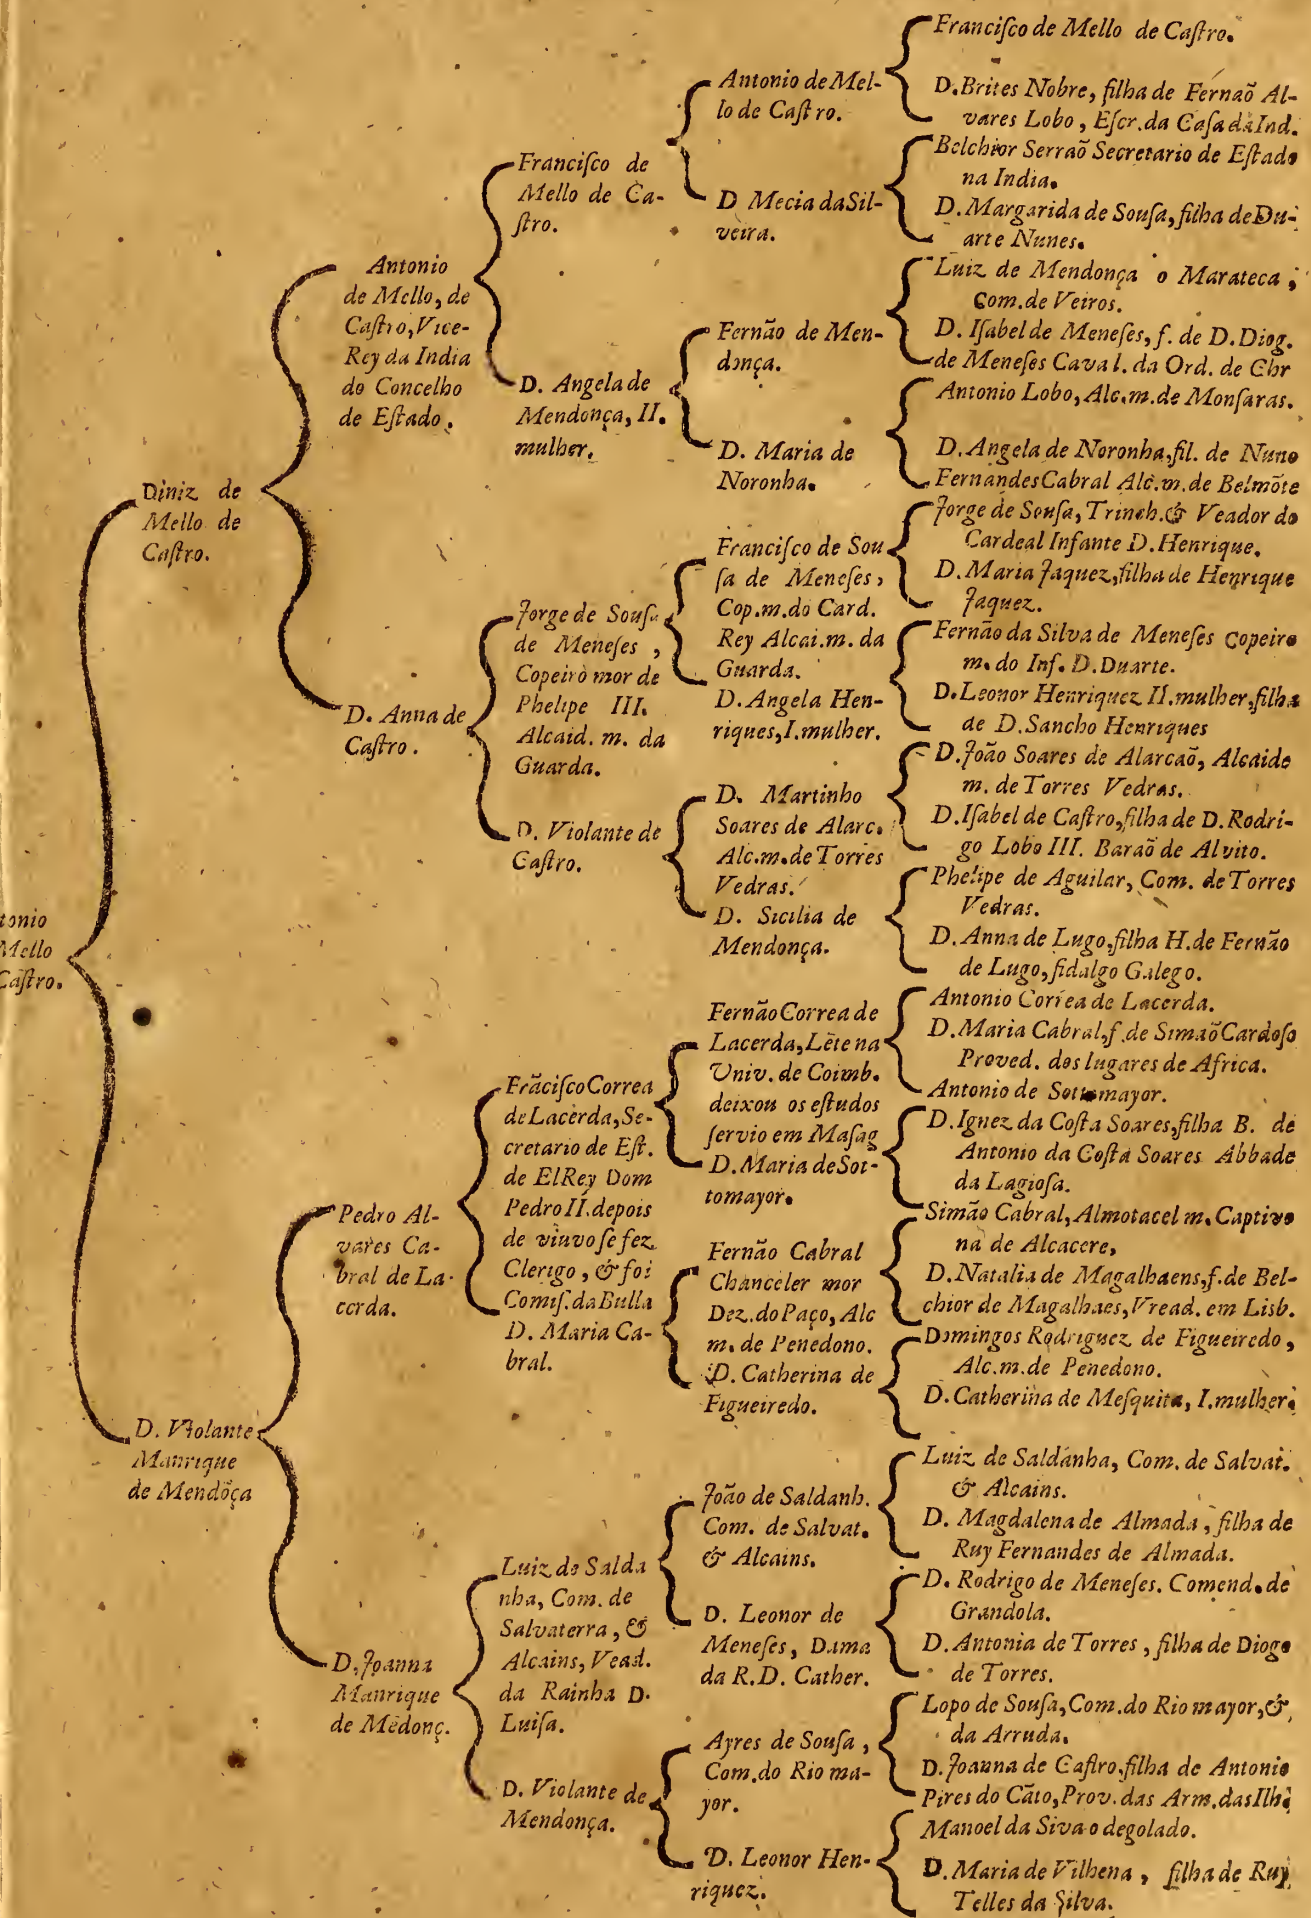 tonio
Mello
Castro.
Diniz de
Mello de
Caſtro.
D. Violante
Manrique
de Mendõça
Antonio
de Mello, de
Caſtro, Vice-
Rey da India
do Concelho
de Eſtado.
D. Anna de
Caſtro.
Pedro Al-
vares Ca-
bral de La-
cerda.
D. Joanna
Manrique
de Mẽdonç.
Franciſco de
Mello de Ca-
ſtro.
D. Angela de
Mendonça, II.
mulher.
Jorge de Souſa
de Meneſes,
Copeirò mor de
Phelipe III.
Alcaid. m. da
Guarda.
D. Violante de
Caſtro.
Frãciſco Correa
de Lacerda, Se-
cretario de Eſt.
de ElRey Dom
Pedro II. depois
de viuvo ſe fez
Clerigo, & foi
Comiſ. da Bulla
D. Maria Ca-
bral.
Luiz de Salda
nha, Com. de
Salvaterra, &
Alcains, Vead.
da Rainha D.
Luiſa.
D. Violante de
Mendonça.
Antonio de Mel-
lo de Caſtro.
D Mecia da Sil-
veira.
Fernão de Men-
donça.
D. Maria de
Noronha.
Franciſco de Sou
ſa de Meneſes,
Cop. m. do Card.
Rey Alcai. m. da
Guarda.
D. Angela Hen-
riques, I. mulher.
D. Martinho
Soares de Alarc.
Alc. m. de Torres
Vedras.
D. Sicilia de
Mendonça.
Fernão Correa de
Lacerda, Lẽte na
Univ. de Coimb.
deixou os eſtudos
ſervio em Maſag
D. Maria de Sot-
tomayor.
Fernão Cabral
Chanceler mor
Dez. do Paço, Alc
m. de Penedono.
D. Catherina de
Figueiredo.
João de Saldanh.
Com. de Salvat.
& Alcains.
D. Leonor de
Meneſes, Dama
da R. D. Cather.
Ayres de Souſa,
Com. do Rio ma-
yor.
D. Leonor Hen-
riquez.
Franciſco de Mello de Caſtro.
D. Brites Nobre, filha de Fernaõ Al-
vares Lobo, Eſcr. da Caſa da Ind.
Belchior Serraõ Secretario de Eſtado
na India.
D. Margarida de Souſa, filha de Du-
arte Nunes.
Luiz de Mendonça o Marateca,
Com. de Veiros.
D. Iſabel de Meneſes, f. de D. Diog.
de Meneſes Caval. da Ord. de Chr
Antonio Lobo, Alc. m. de Monſaras.
D. Angela de Noronha, fil. de Nuno
Fernandes Cabral Alc. m. de Belmõte
Jorge de Souſa, Trinch. & Veador do
Cardeal Infante D. Henrique.
D. Maria Jaquez, filha de Henrique
Jaquez.
Fernão da Silva de Meneſes Copeiro
m. do Inf. D. Duarte.
D. Leonor Henriquez II. mulher, filha
de D. Sancho Henriques
D. João Soares de Alarcaõ, Alcaide
m. de Torres Vedras.
D. Iſabel de Caſtro, filha de D. Rodri-
go Lobo III. Baraõ de Alvito.
Phelipe de Aguilar, Com. de Torres
Vedras.
D. Anna de Lugo, filha H. de Fernão
de Lugo, fidalgo Galego.
Antonio Correa de Lacerda.
D. Maria Cabral, f. de Simaõ Cardoſo
Proved. dos lugares de Africa.
Antonio de Sottomayor.
D. Ignez da Coſta Soares, filha B. de
Antonio da Coſta Soares Abbade
da Lagioſa.
Simão Cabral, Almotacel m. Captivo
na de Alcacere,
D. Natalia de Magalhaens, f. de Bel-
chior de Magalhaes, Vread. em Lisb.
Domingos Rodriguez de Figueiredo,
Alc. m. de Penedono.
D. Catherina de Meſquita, I. mulher.
Luiz de Saldanha, Com. de Salvat.
& Alcains.
D. Magdalena de Almada, filha de
Ruy Fernandes de Almada.
D. Rodrigo de Meneſes. Comend. de
Grandola.
D. Antonia de Torres, filha de Diogo
de Torres.
Lopo de Souſa, Com. do Rio mayor, &
da Arruda.
D. Joanna de Caſtro, filha de Antonio
Pires do Cãto, Prov. das Arm. das Ilh
Manoel da Siva o degolado.
D. Maria de Vilhena, filha de Ruy
Telles da Silva.